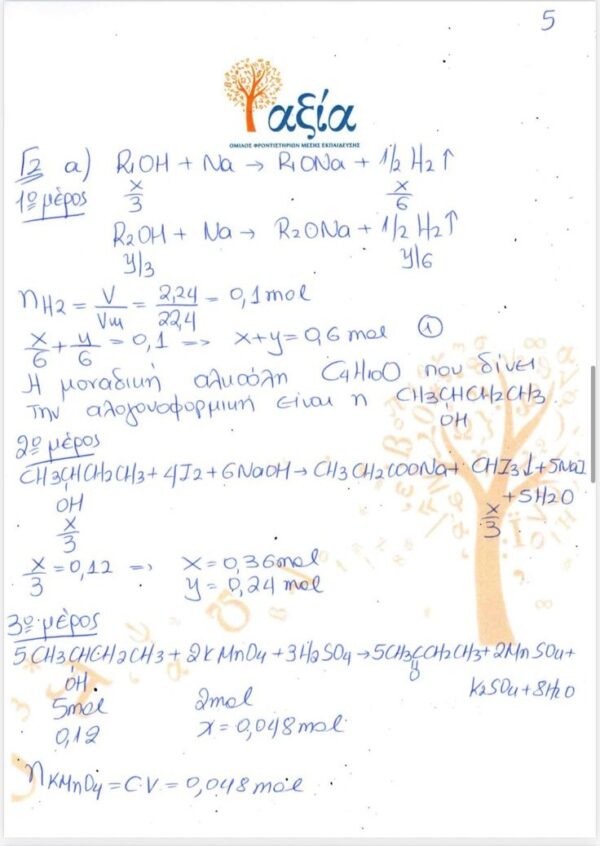 5
αξία
ΟΜΙΛΟΣ ΦΡΟΝΤΙΣΤΗΡΙΩΝ ΜΕΣΗΣ ΕΚΠΑΙΔΕΥΣΗΣ
Γ2 α) R₁OH + Na → R₁ONa + 1/2 H₂↑
1º μέρος x/3 x/6
R₂OH + Na → R₂ONa + 1/2 H₂↑
y/3 y/6
nH₂ = V/Vm = 2,24/22,4 = 0,1 mol
x/6 + y/6 = 0,1 => x+y = 0,6 mol ①
Η μοναδική αλκοόλη C₄H₁₀O που δίνει
την αλογονοφορμική είναι η CH₃CHCH₂CH₃
OH
2º μέρος
CH₃CHCH₂CH₃ + 4I₂ + 6NaOH → CH₃CH₂COONa + CHI₃↓ + 5NaI
OH + 5H₂O
x/3 x/3
x/3 = 0,12 => x = 0,36 mol
y = 0,24 mol
3º μέρος
5CH₃CHCH₂CH₃ + 2KMnO₄ + 3H₂SO₄ → 5CH₃CCH₂CH₃ + 2MnSO₄ +
OH O K₂SO₄ + 8H₂O
5mol 2mol
0,12 x = 0,048 mol
nKMnO₄ = C·V = 0,048 mol